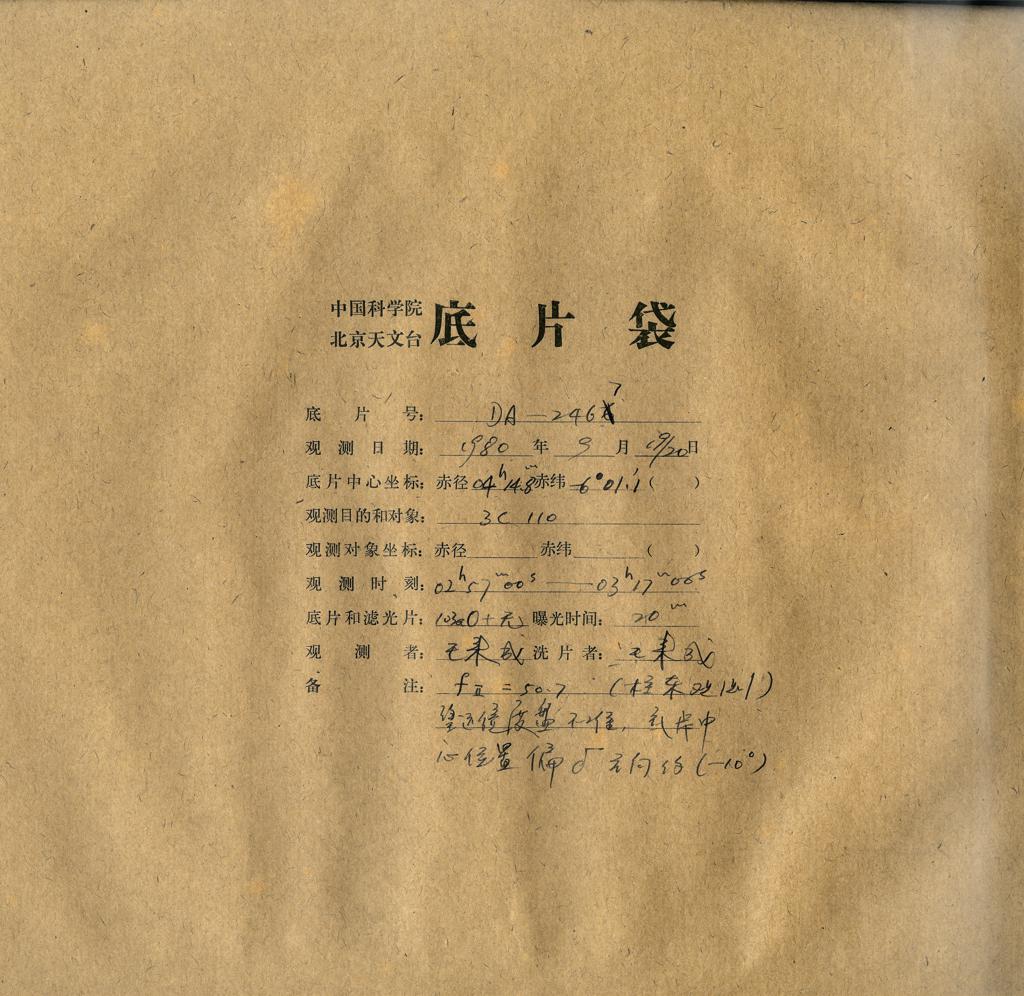 中国科学院
北京天文台
底片袋
底片号: DA—2467
观测日期: 1980年9月19/20日
底片中心坐标: 赤径04ʰ14.8ᵐ赤纬-6°01.1′( )
观测目的和对象: 3C 110
观测对象坐标: 赤径 赤纬 ( )
观测时刻: 02ʰ57ᵐ00ˢ——03ʰ17ᵐ00ˢ
底片和滤光片: 103aO+无 曝光时间: 20ᵐ
观测者: 洗片者:
备注: fⅡ=50.7
望远镜度盘不准,底片中
心位置偏δ方向约(-10°)